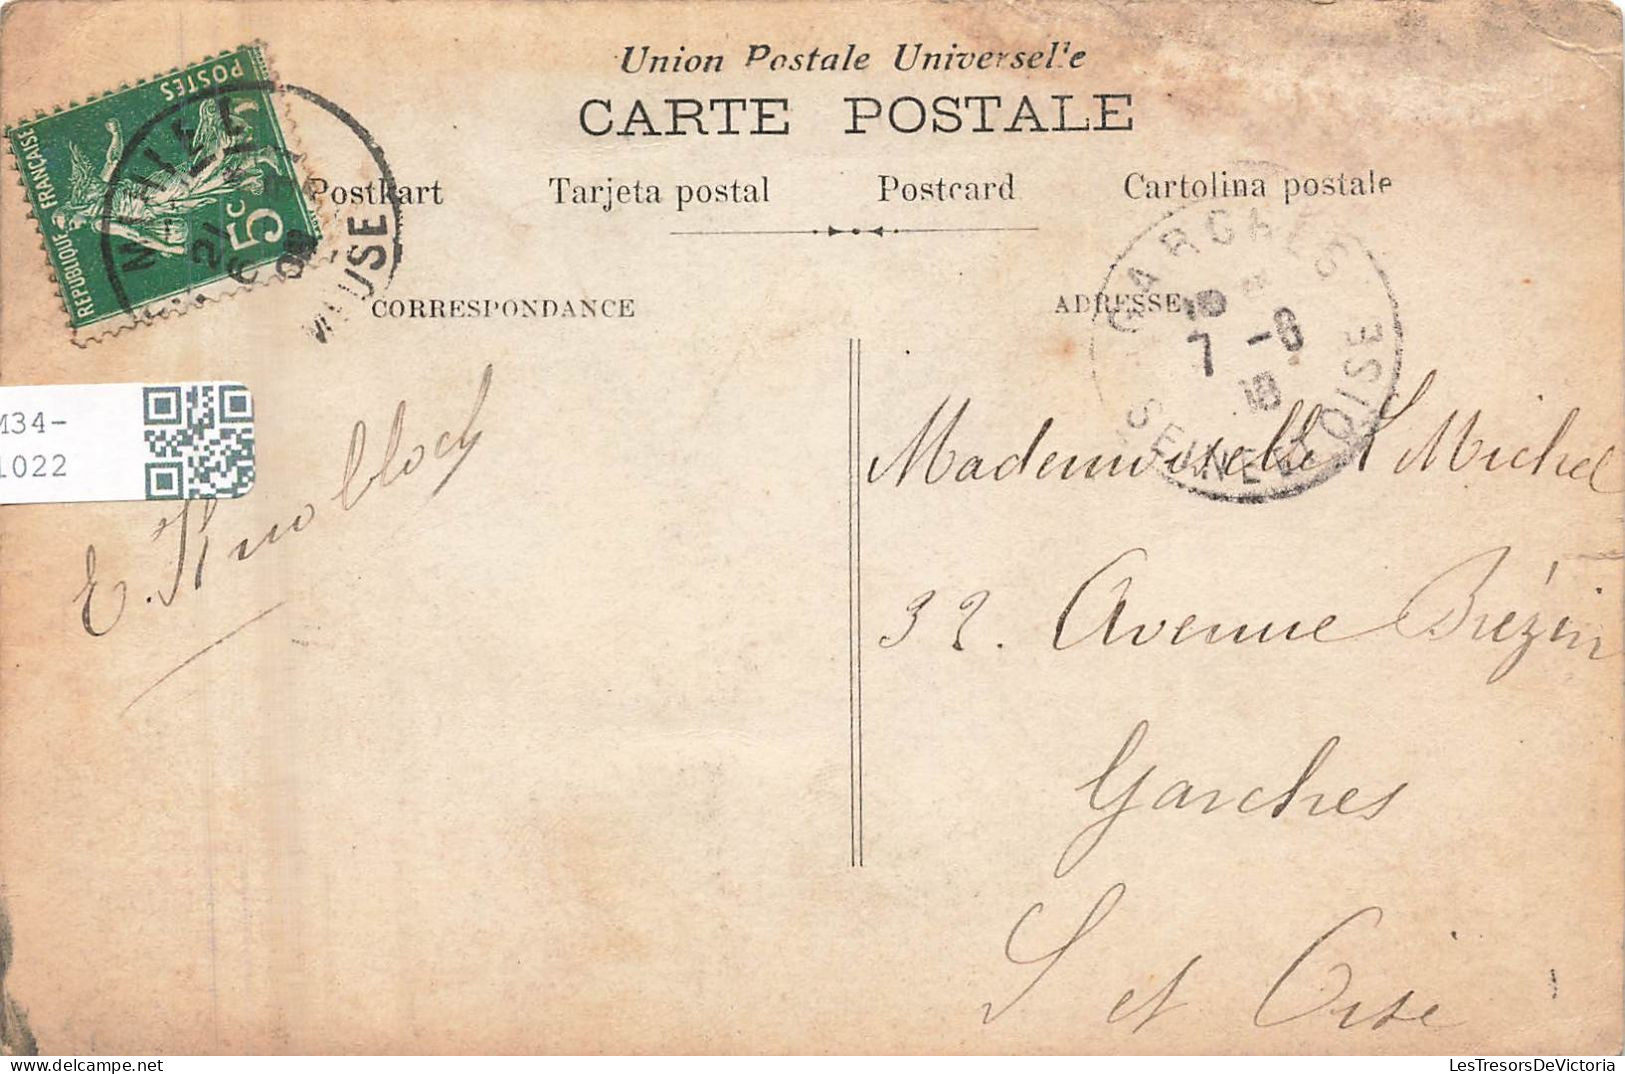 Union Postale Universelle
CARTE POSTALE
Postkart Tarjeta postal Postcard Cartolina postale
POSTES
REPUBLIQUE FRANÇAISE
5c
MEUSE
GARCHES
7 -8
SEINE ET OISE
CORRESPONDANCE
ADRESSE
M34-
1022
E. Knobloch
Mademoiselle S Michel
32. Avenue Brézin
Garches
S et Oise
LesTresorsDeVictoria